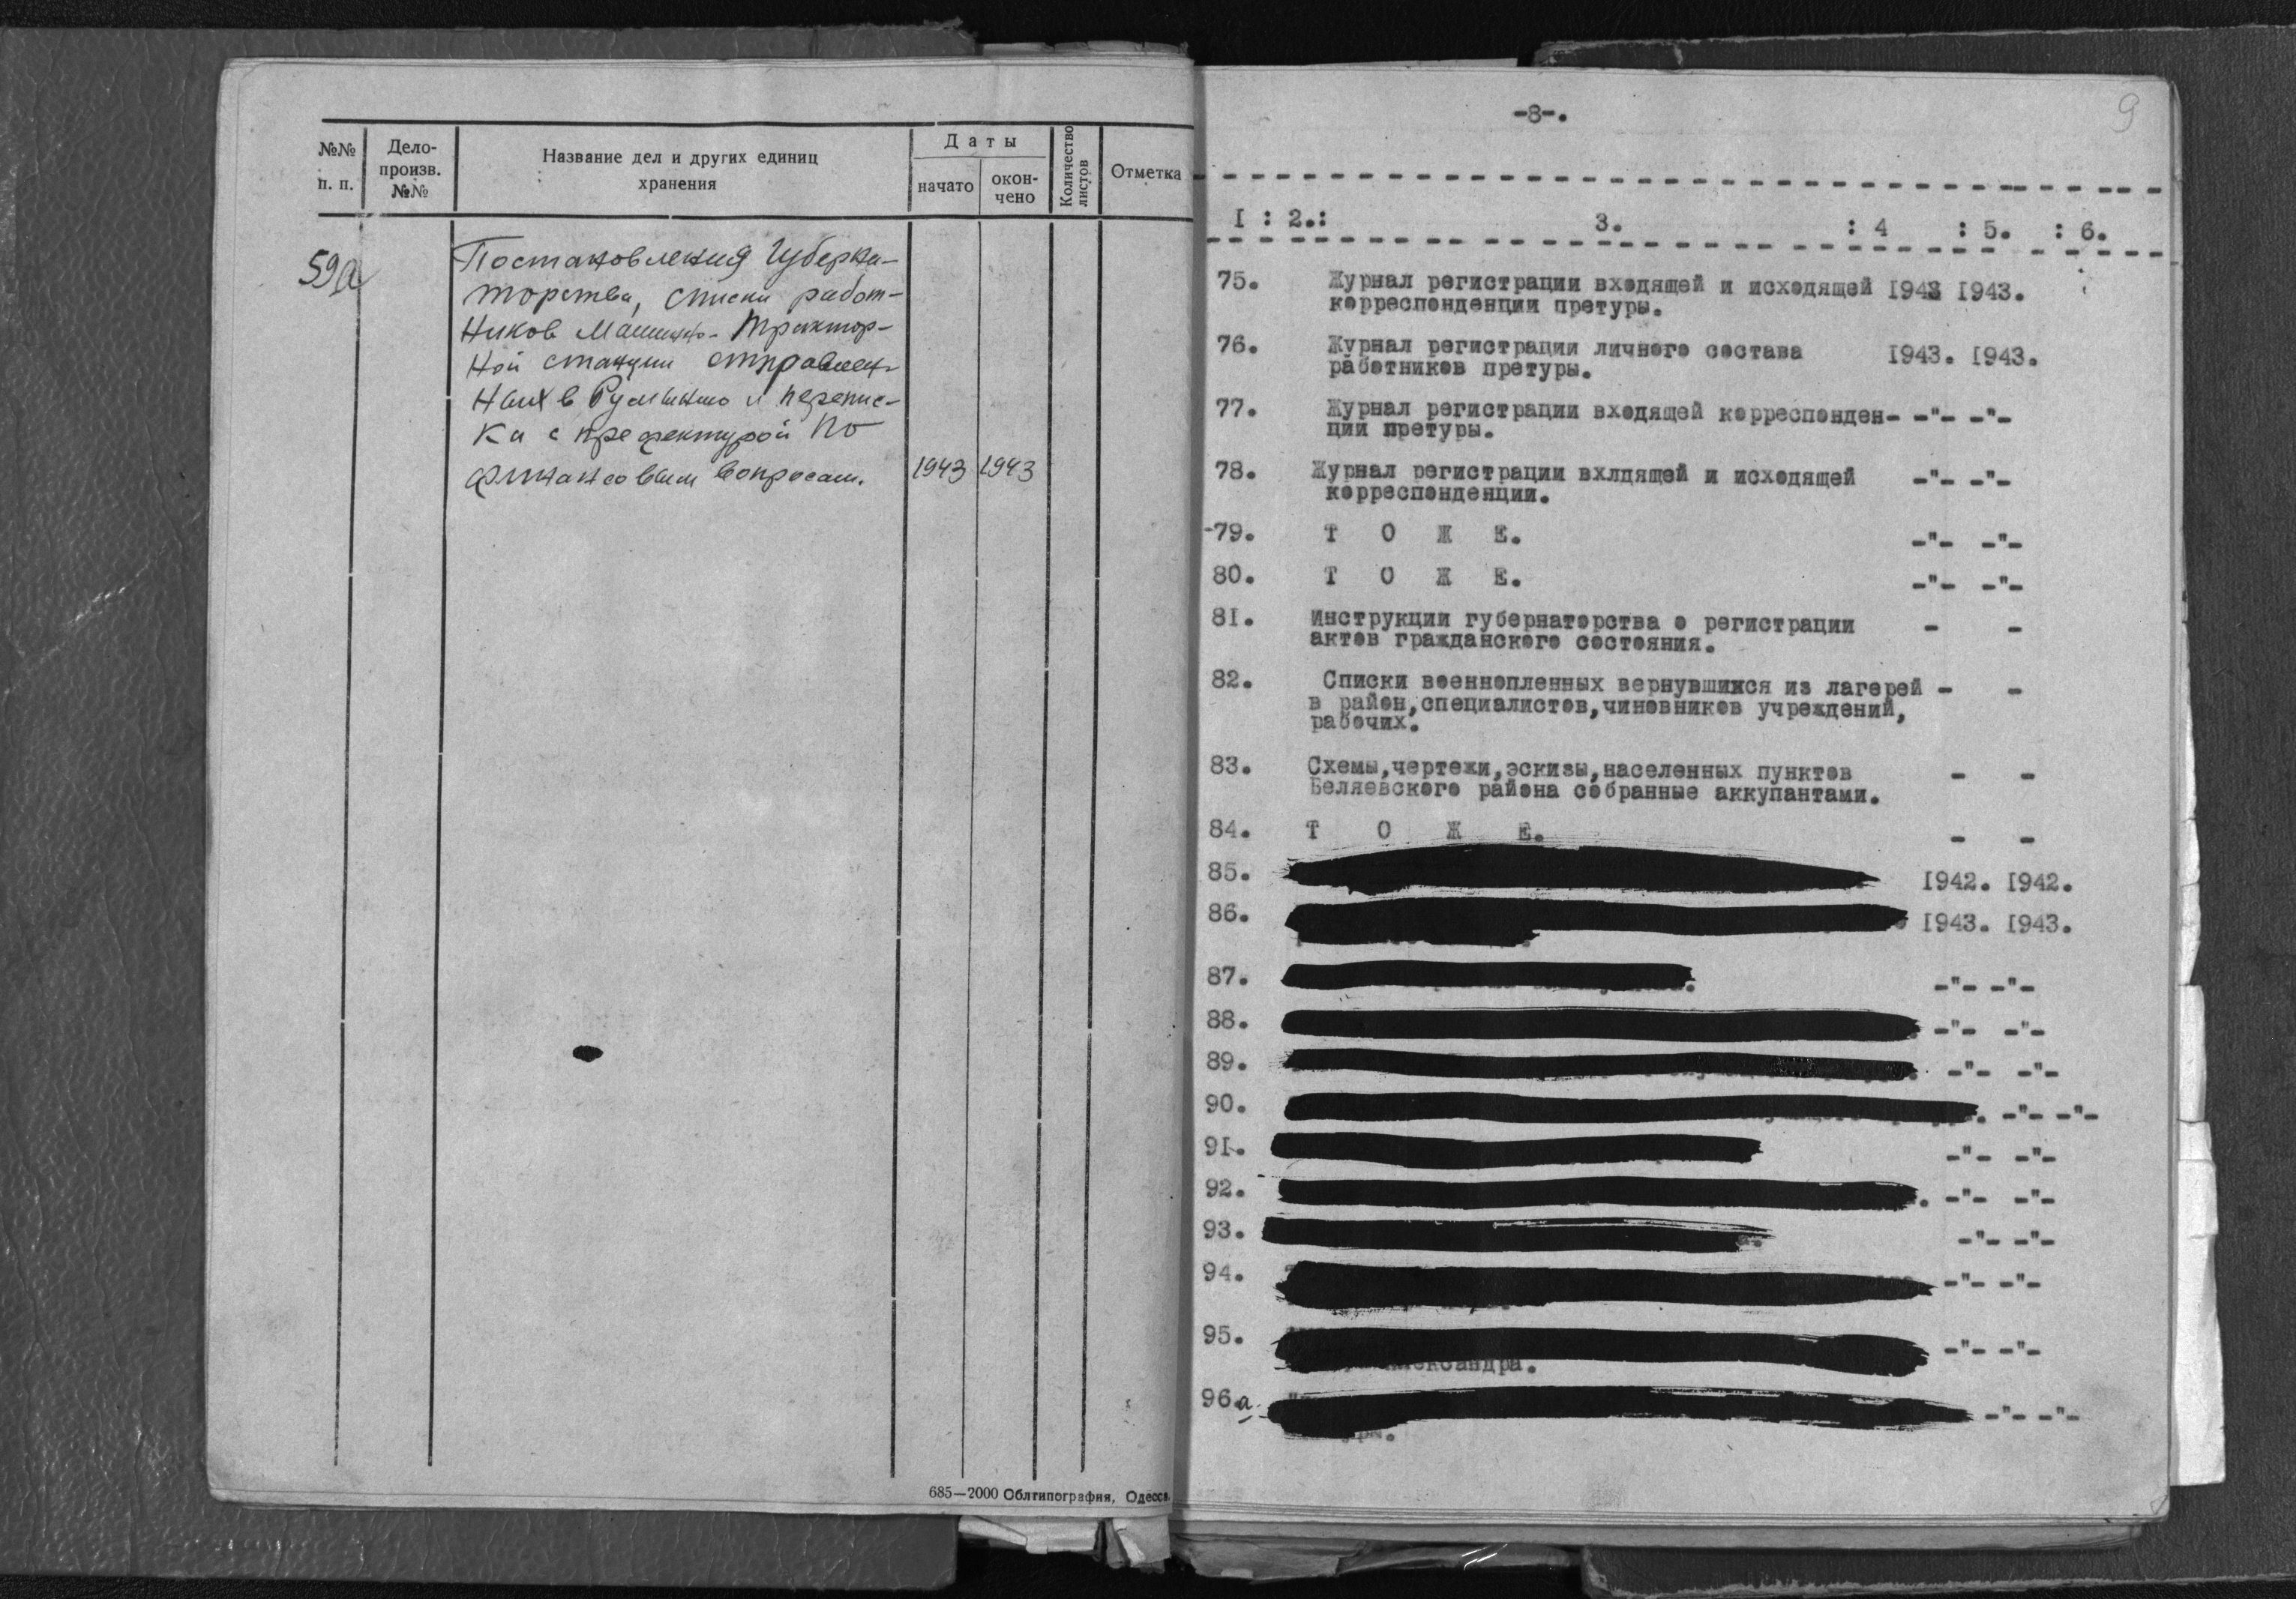 №№ п. п.
Дело-произв. №№
Название дел и других единиц хранения
Даты
начато
окон-чено
Количество листов
Отметка
59а
Постановления Губерна-
торства, списки работ-
ников Машинно-трактор-
ной станции отправлен-
ных в Румынию и перепис-
ка с префектурой по
финансовым вопросам. 1943 1943
685—2000 Облтипография, Одесса.
9
-8-.
I : 2.: 3. : 4 : 5. : 6.
75. Журнал регистрации входящей и исходящей 1943 I943.
корреспонденции претуры.
76. Журнал регистрации личного состава I943. I943.
работников претуры.
77. Журнал регистрации входящей корреспонден- -"- -"-
ции претуры.
78. Журнал регистрации вхлдящей и исходящей -"- -"-
корреспонденции.
-79. Т О Ж Е. -"- -"-
80. Т О Ж Е. -"- -"-
8I. Инструкции губернаторства о регистрации - -
актов гражданского состояния.
82. Списки военнопленных вернувшихся из лагерей - -
в район,специалистов,чиновников учреждений,
рабочих.
83. Схемы,чертежи,эскизы,населенных пунктов - -
Беляевского района собранные аккупантами.
84. Т О Ж Е. - -
85. I942. I942.
86. I943. I943.
87. -"- -"-
88. -"- -"-
89. -"- -"-
90. -"- -"-
9I. -"- -"-
92. -"- -"-
93. -"- -"-
94. -"- -"-
95. -"- -"-
96.а -"- -"-